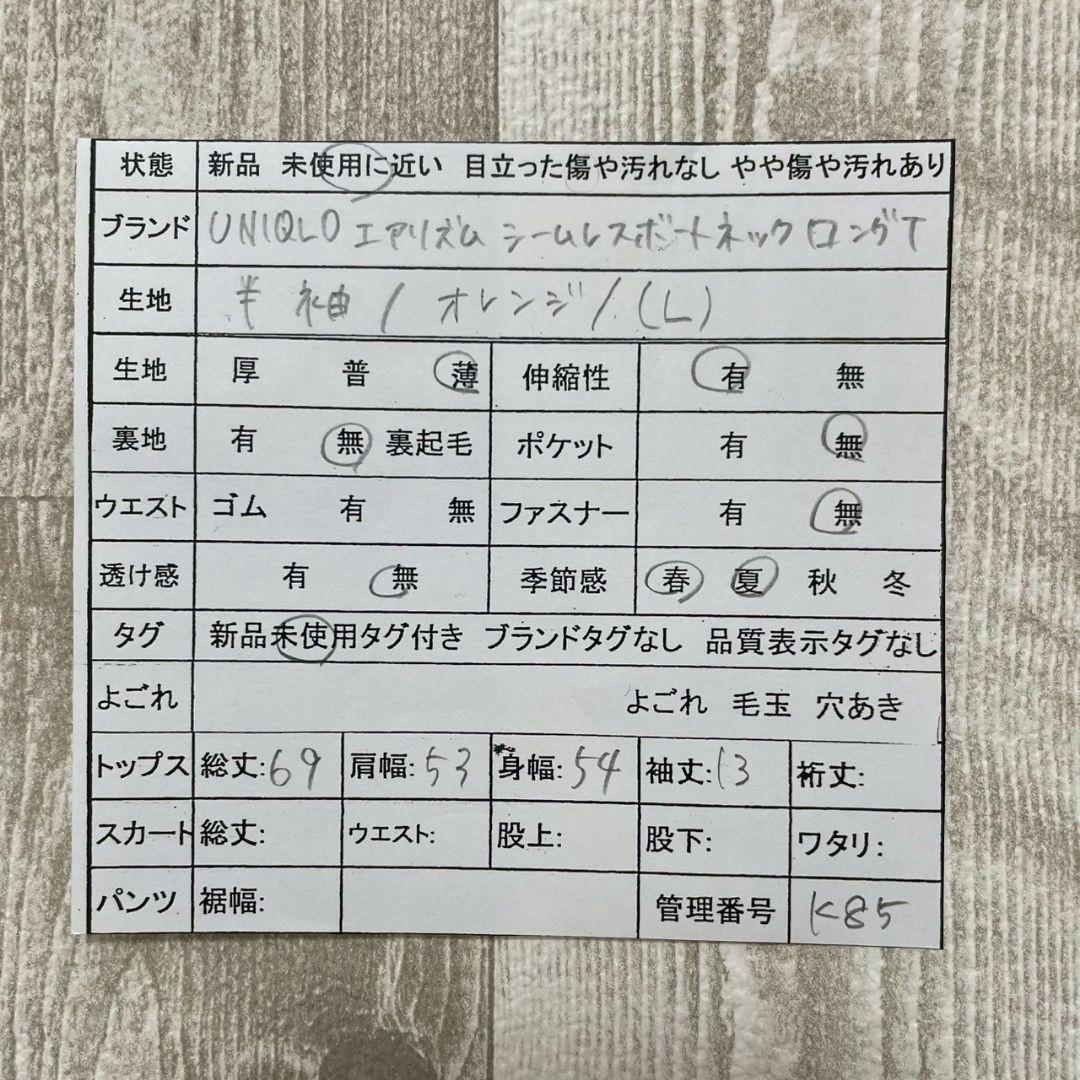 状態 新品 未使用に近い 目立った傷や汚れなし やや傷や汚れあり
ブランド UNIQLO エアリズム シームレスボートネックロングT
生地 半袖/オレンジ/(L)
生地 厚 普 薄 伸縮性 有 無
裏地 有 無 裏起毛 ポケット 有 無
ウエスト ゴム 有 無 ファスナー 有 無
透け感 有 無 季節感 春 夏 秋 冬
タグ 新品未使用タグ付き ブランドタグなし 品質表示タグなし
よごれ よごれ 毛玉 穴あき
トップス 総丈:69 肩幅:53 身幅:54 袖丈:13 裄丈:
スカート 総丈: ウエスト: 股上: 股下: ワタリ:
パンツ 裾幅: 管理番号 K85